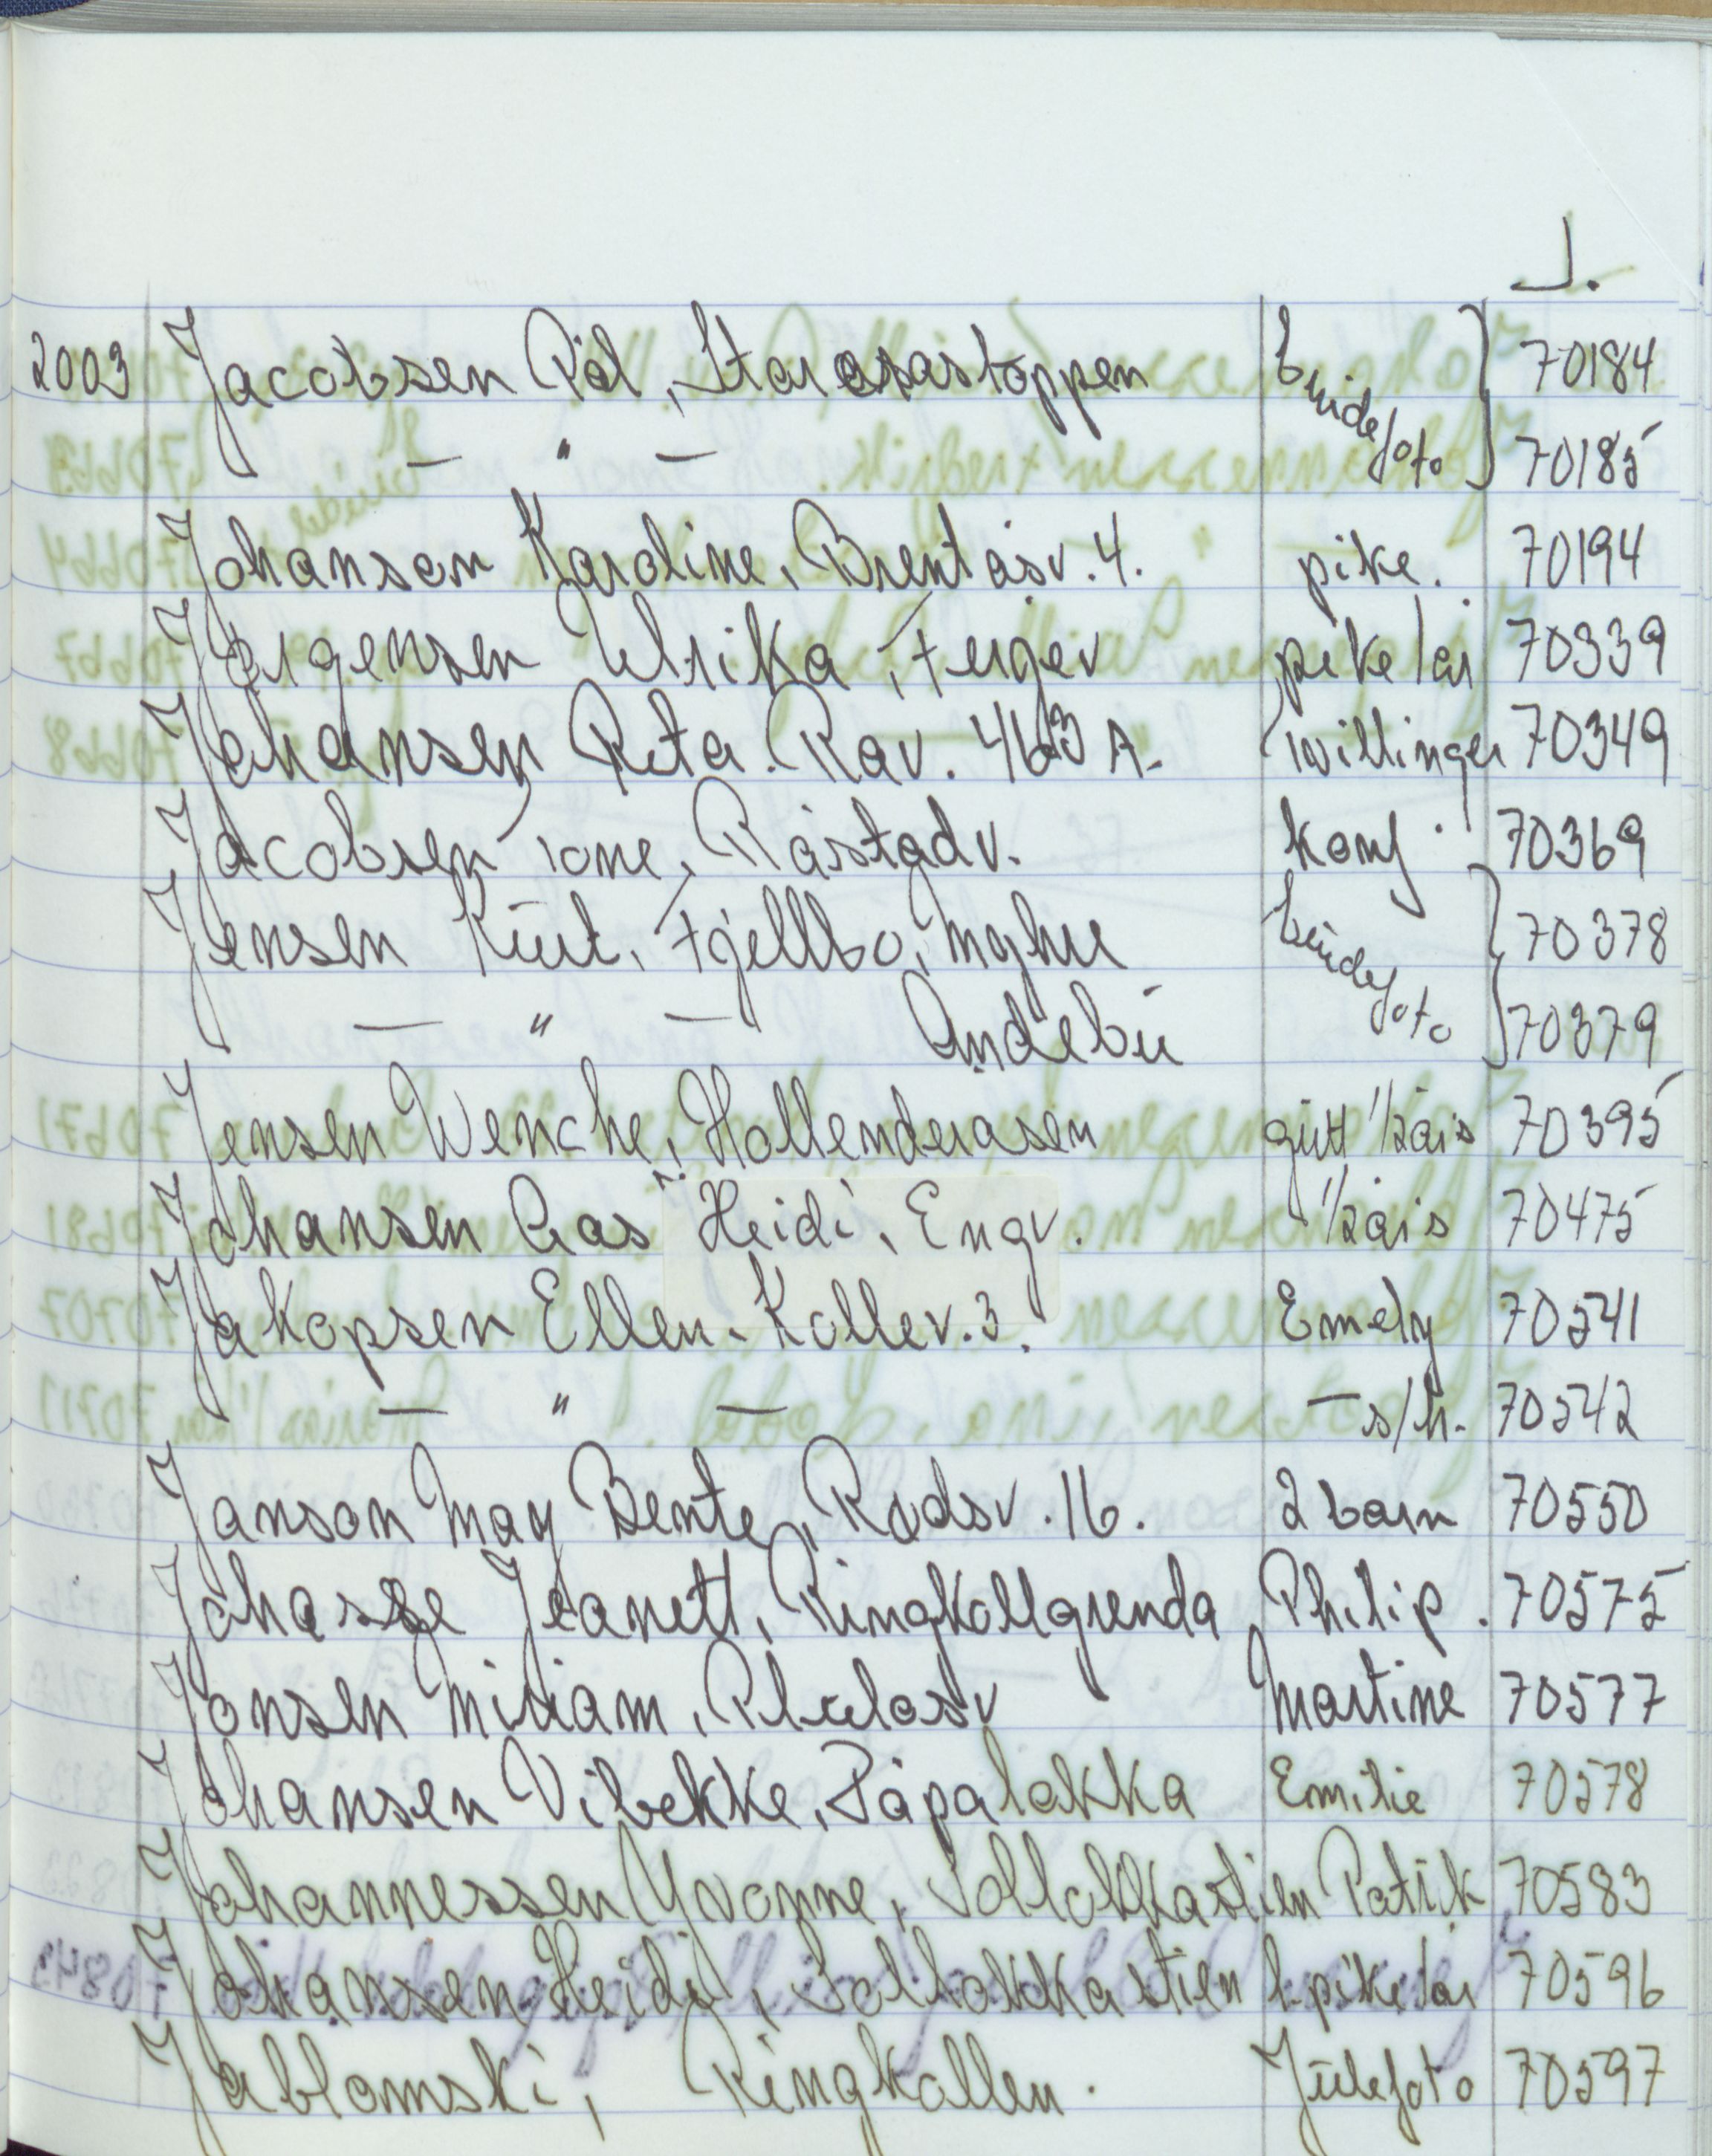 J.
2003 Jacobsen Pål, Staråsastoppen brudefoto 70184
— " — 70185
Johansen Karoline, Brentåsv. 4. pike. 70194
Jørgensen Ulrika, Furjev pike 1år 70339
Johansen Rita. Rav. 463 A. tvillinger 70349
Jacobsen Tone, Råstadv. konf. 70369
Jensen Rut, Fjellbo, Myhre brudefoto 70378
— " — Andebu 70379
Jensen Wenche, Hollenderåsen gutt 1/2års 70395
Johansen Aas Heidi, Engv. 1/2års 70475
Jakopsen Ellen. Kollev. 3. Emely 70541
— " — — s/h. 70542
Janson May Bente, Rødsv. 16. 2 barn 70550
Jeanett, Ringkollgrenda Philip. 70575
Jonsen Miriam, Martine 70577
Johansen Vibekke, Påpaløkka Emilie 70578
Johannessen Yvonne, Solløkkastien Patrik 70583
Johansen Heidi, Solløkkastien 1. pike 1år 70596
Jablomski, Ringkollen. Julefoto 70597